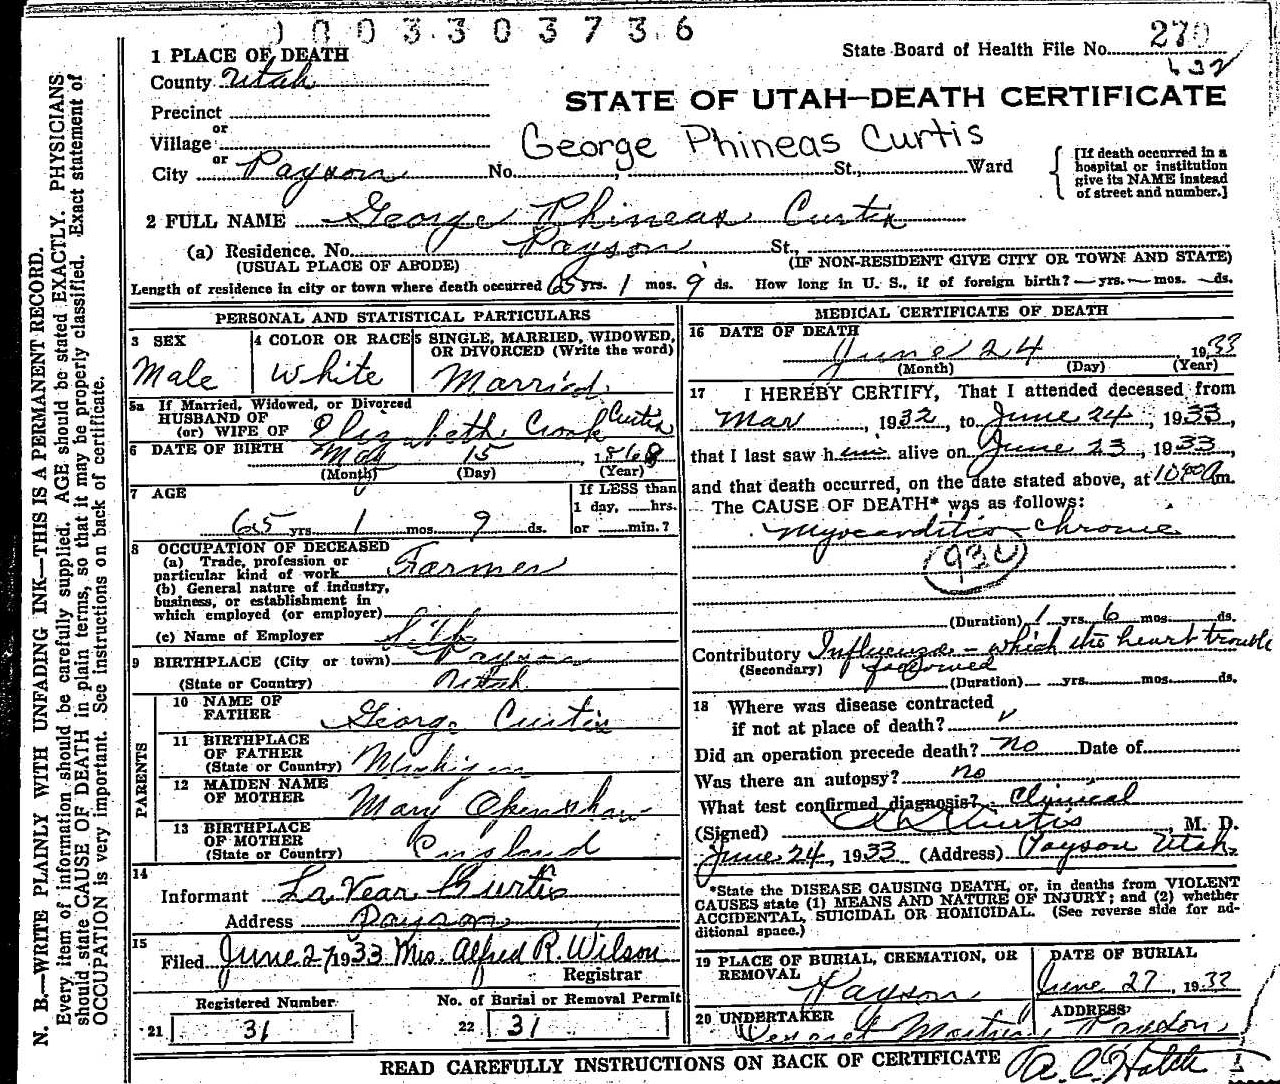 0003303736
State Board of Health File No. 270
632
1 PLACE OF DEATH
County Utah
STATE OF UTAH—DEATH CERTIFICATE
Precinct
or
Village
or
City Payson No. St., Ward
George Phineas Curtis
[If death occurred in a hospital or institution give its NAME instead of street and number.]
2 FULL NAME George Phineas Curtis
(a) Residence. No. Payson St.,
(USUAL PLACE OF ABODE) (IF NON-RESIDENT GIVE CITY OR TOWN AND STATE)
Length of residence in city or town where death occurred 65 yrs. 1 mos. 9 ds. How long in U. S., if of foreign birth? — yrs. — mos. — ds.
PERSONAL AND STATISTICAL PARTICULARS
3 SEX
Male
4 COLOR OR RACE
White
5 SINGLE, MARRIED, WIDOWED, OR DIVORCED (Write the word)
Married
5a If Married, Widowed, or Divorced
HUSBAND OF
(or) WIFE OF Elizabeth Crook Curtis
6 DATE OF BIRTH May 15 1868
(Month) (Day) (Year)
7 AGE
65 yrs. 1 mos. 9 ds.
If LESS than
1 day, hrs.
or min.?
8 OCCUPATION OF DECEASED
(a) Trade, profession or
particular kind of work Farmer
(b) General nature of industry,
business, or establishment in
which employed (or employer)
(c) Name of Employer
9 BIRTHPLACE (City or town) Payson
(State or Country) Utah
PARENTS
10 NAME OF FATHER George Curtis
11 BIRTHPLACE OF FATHER
(State or Country) Michigan
12 MAIDEN NAME OF MOTHER Mary Openshaw
13 BIRTHPLACE OF MOTHER
(State or Country) England
14
Informant La Vear Curtis
Address Payson
15
Filed June 27 1933 Mrs. Alfred R. Wilson
Registrar
Registered Number
21 31
No. of Burial or Removal Permit
22 31
MEDICAL CERTIFICATE OF DEATH
16 DATE OF DEATH
June 24 1933
(Month) (Day) (Year)
17 I HEREBY CERTIFY, That I attended deceased from
Mar, 1932, to June 24, 1933,
that I last saw him alive on June 23, 1933,
and that death occurred, on the date stated above, at m.
The CAUSE OF DEATH* was as follows:
Myocarditis Chronic
(Duration) 1 yrs. 6 mos. ds.
Contributory Influenza - which the heart trouble
(Secondary) followed
(Duration) yrs. mos. ds.
18 Where was disease contracted
if not at place of death?
Did an operation precede death? no Date of
Was there an autopsy? no
What test confirmed diagnosis? Clinical
(Signed) Curtis, M. D.
June 24, 1933 (Address) Payson Utah
*State the DISEASE CAUSING DEATH, or, in deaths from VIOLENT
CAUSES state (1) MEANS AND NATURE OF INJURY; and (2) whether
ACCIDENTAL, SUICIDAL OR HOMICIDAL. (See reverse side for ad-
ditional space.)
19 PLACE OF BURIAL, CREMATION, OR REMOVAL
Payson
DATE OF BURIAL
June 27, 1933
20 UNDERTAKER
ADDRESS
Payson
READ CAREFULLY INSTRUCTIONS ON BACK OF CERTIFICATE
N. B.—WRITE PLAINLY WITH UNFADING INK—THIS IS A PERMANENT RECORD.
Every item of information should be carefully supplied. AGE should be stated EXACTLY. PHYSICIANS
should state CAUSE OF DEATH in plain terms, so that it may be properly classified. Exact statement of
OCCUPATION is very important. See instructions on back of certificate.